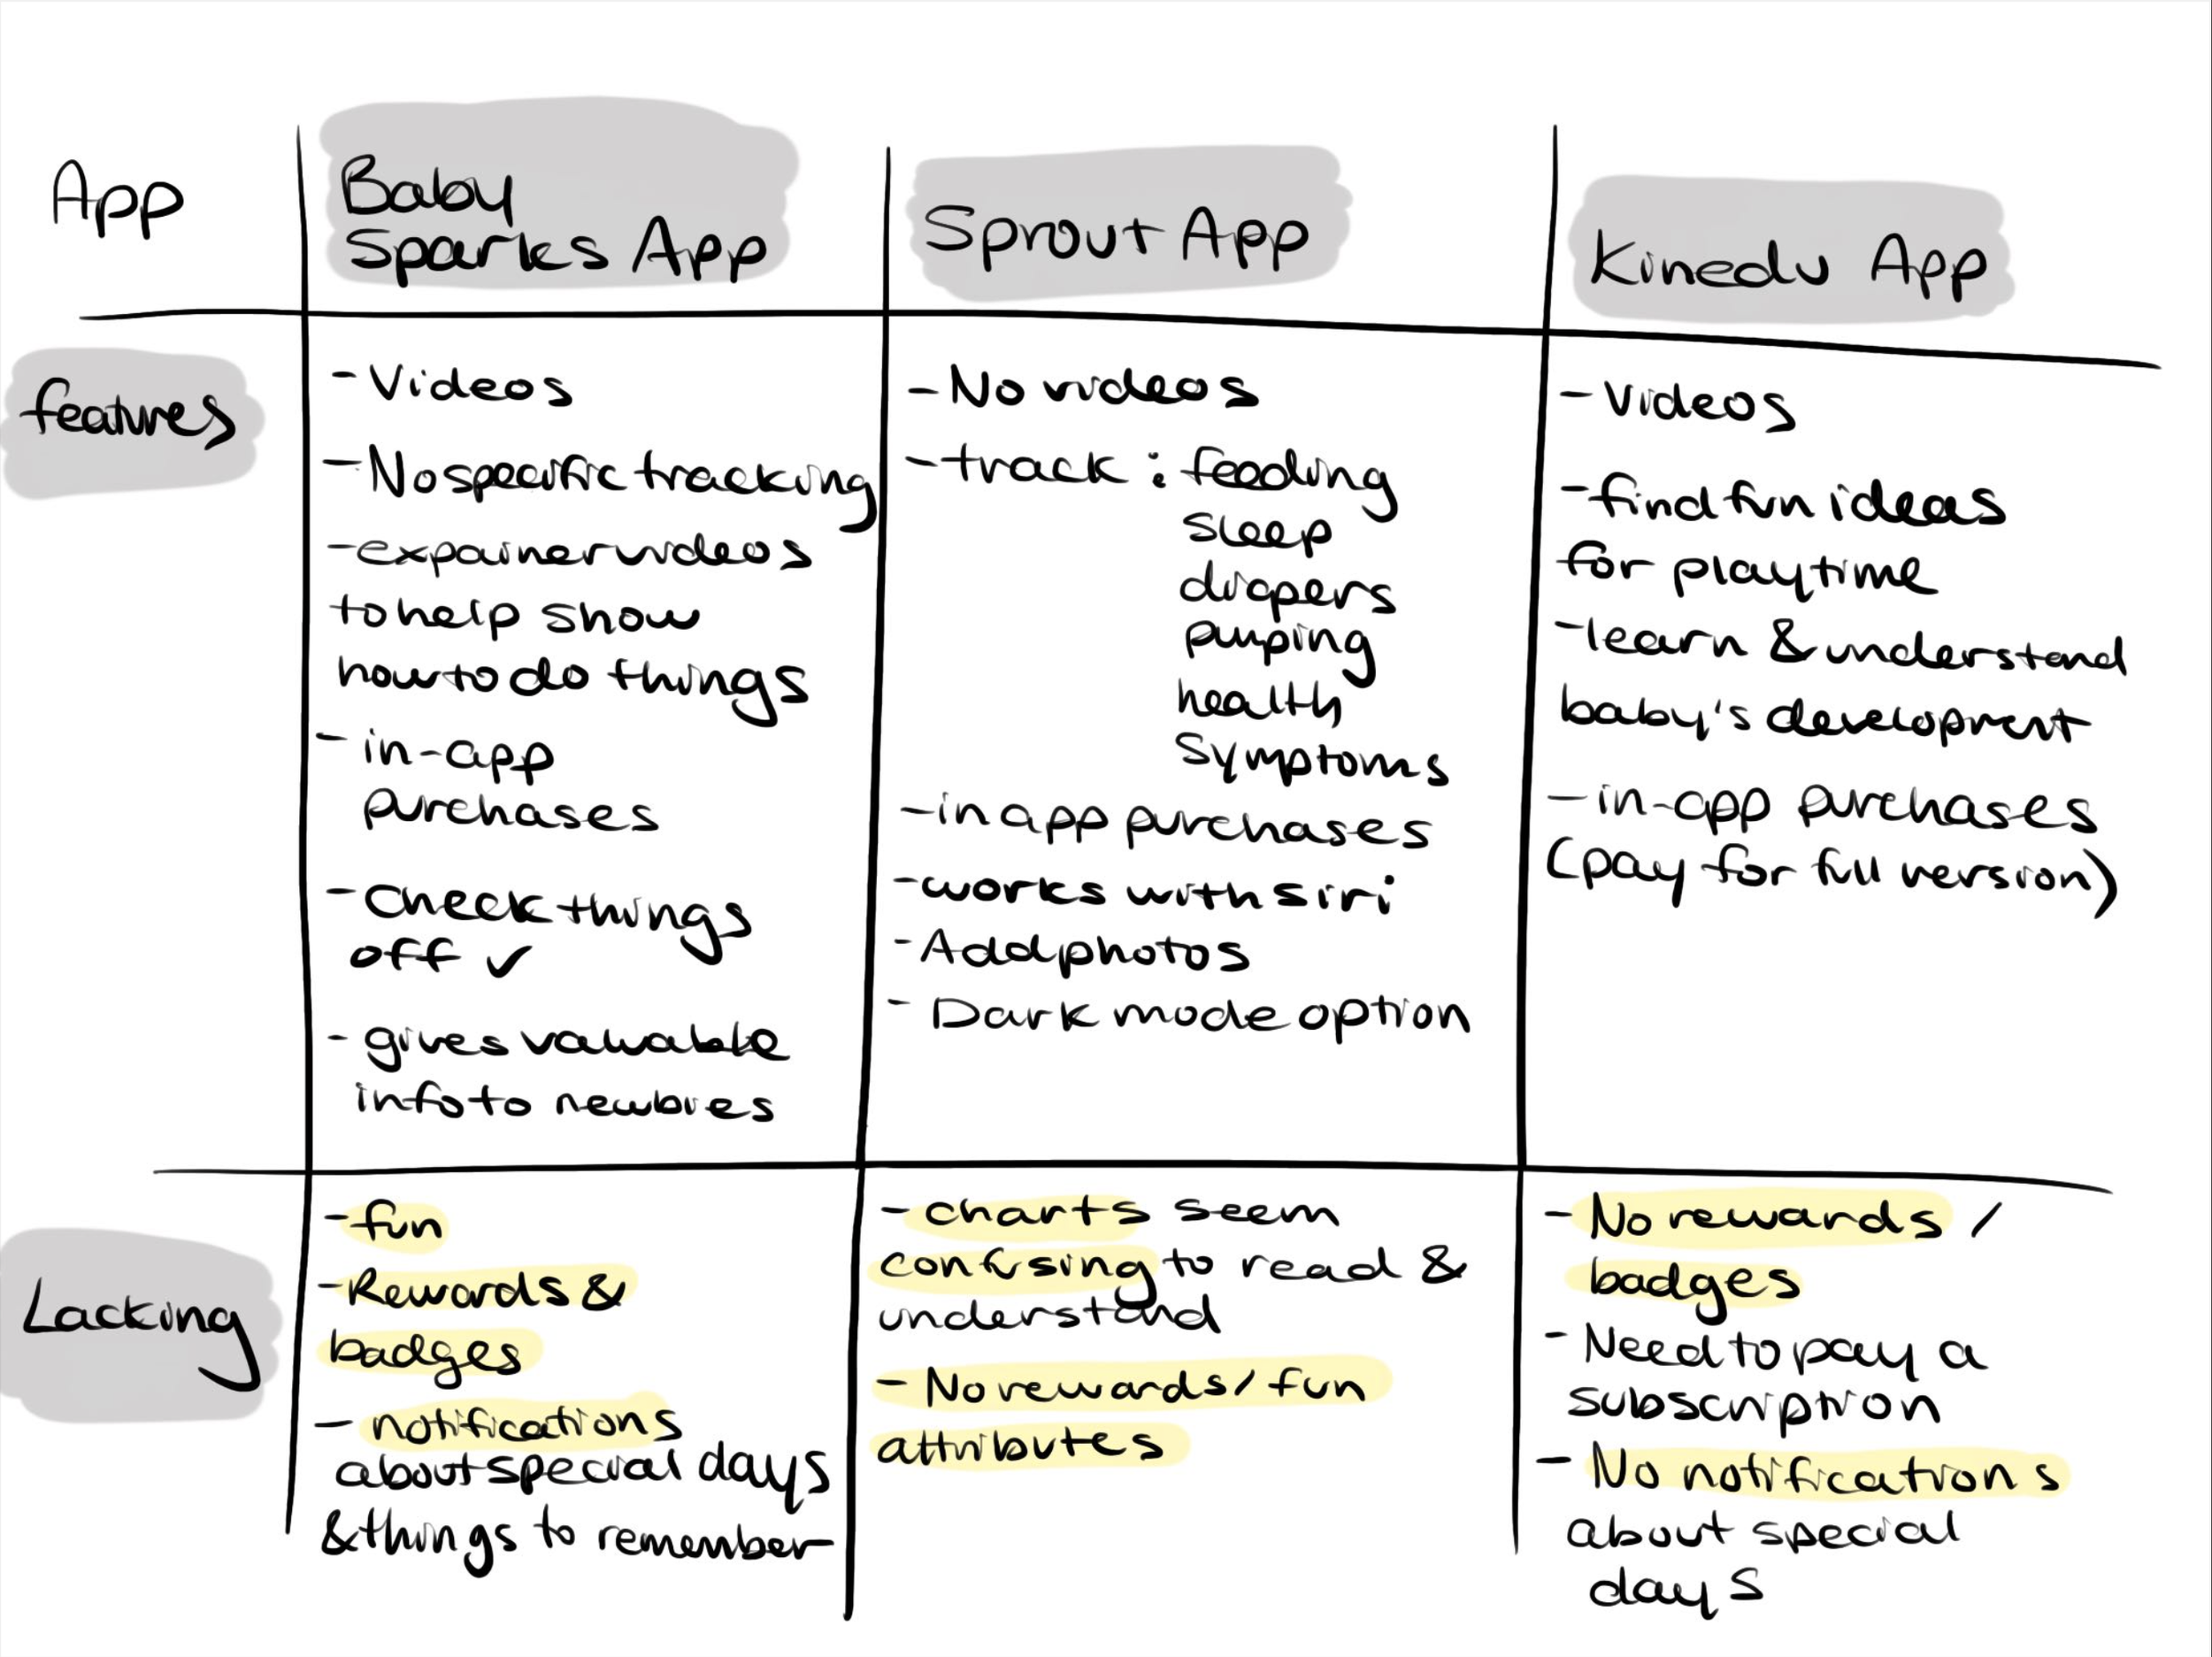 App
Baby
Sparks App
Sprout App
Kinedu App
features
- Videos
- No specific tracking
- expainer videos
to help show
how to do things
- in-app
purchases
- Check things
off ✓
- gives valuable
info to newbies
- No videos
- track : feeding
sleep
diapers
pumping
health
Symptoms
- in app purchases
- works with siri
- Add photos
- Dark mode option
- Videos
- find fun ideas
for playtime
- learn & understand
baby's development
- in-app purchases
(pay for full version)
Lacking
- fun
- Rewards &
badges
- notifications
about special days
& things to remember
- charts seem
confusing to read &
understand
- No rewards / fun
attributes
- No rewards /
badges
- Need to pay a
subscription
- No notifications
about special
days